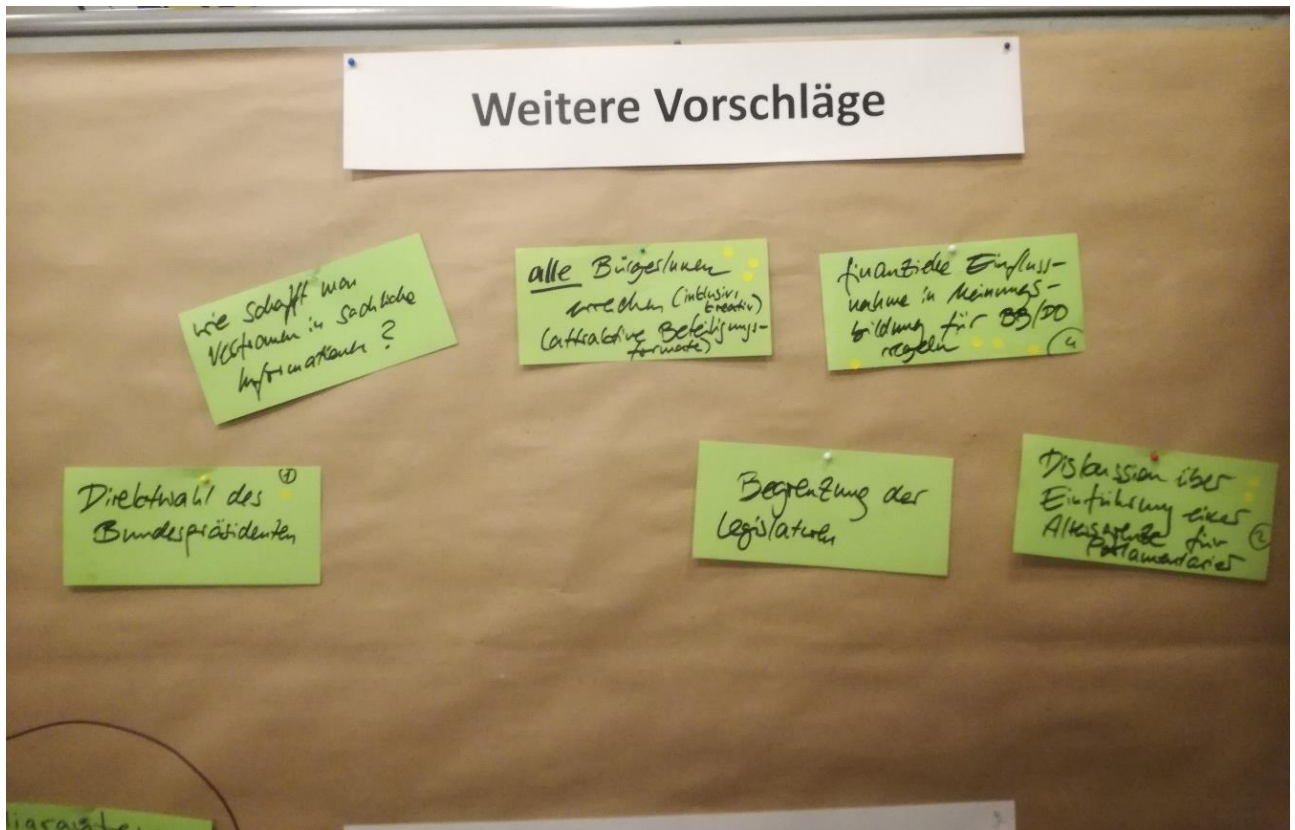 Weitere Vorschläge
wie schafft man
Vertrauen in sachliche
Informationen?
alle BürgerInnen
erreichen (inklusiv,
kreativ)
(attraktive Beteiligungs-
formate)
finanzielle Einfluss-
nahme in Meinungs-
bildung für BB/DD
regeln
4
Direktwahl des
1
Bundespräsidenten
Begrenzung der
Legislaturen
Diskussion über
Einführung einer
Altersgrenze für
2
Parlamentarier